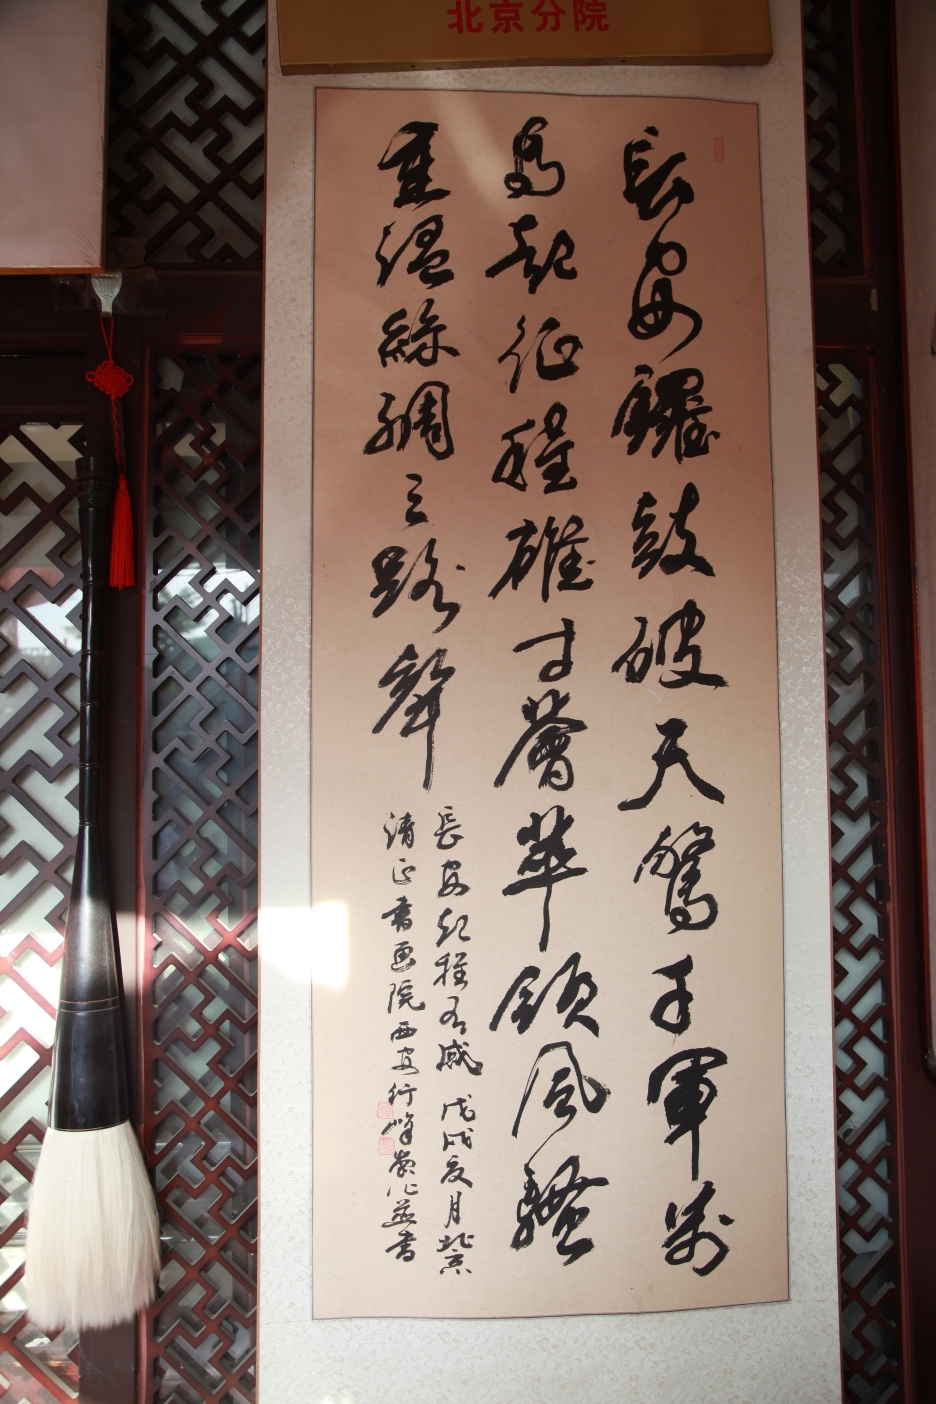 北京分院
長安鑼鼓破天驚千軍萬
馬起征程雄才薈萃領風騷
重温絲綢之路聲
長安起程有感 戊戌夏月北京
清正書画院西安行峰嵗作并書